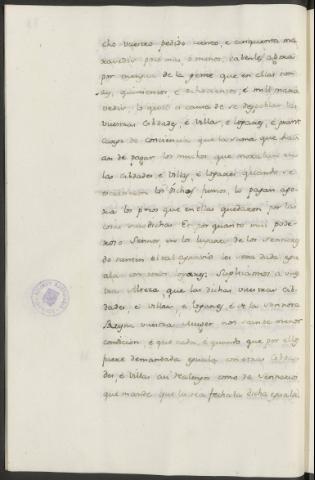 cho vuestro pedido ciento, e cinquenta ma
ravedis poco mas, o menos, caberles agora
por mengua de la gente que en ellas non
ay, quinientos, e ochocientos, e mill mara
vedis: lo qual es causa de se despoblar las
vuestras Cibdades, e Villas, e logares, e grant
cargo de conciencia que la suma que havi
an de pagar los muchos que moraban en
las Cibdades e Villas, e logares quando se
los dichos pagan ago
ra los pocos que en ellas quedaron por las
cosas susodichas. Et por quanto mui pode
roso Señor, en los lugares de los Señorios
de vuestros es les seida dada egu
ala con otros logares; Suplicamos a vues
tra Alteza, que las dichas vuestras Cib
dades, e Villas, e logares, e de la Señora
Reyna vuestra Muger non sean de menor
condicion, e que cada, e quando que por ellos
fuere demandada eguala con otras Cibda
des, e Villas asi Realengos como de Señorios
que mande que luego sea fecha la dicha eguala